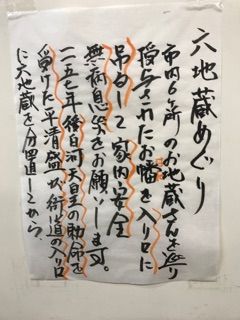 六地蔵めぐり
市内6ヶ所のお地蔵さんを巡り
授与されたお幡を入り口に
吊るして家内安全
無病息災をお願いします。
一一五七年後白河天皇の勅命を
受けた平清盛が街道の入り口
に六地蔵を分置してから、